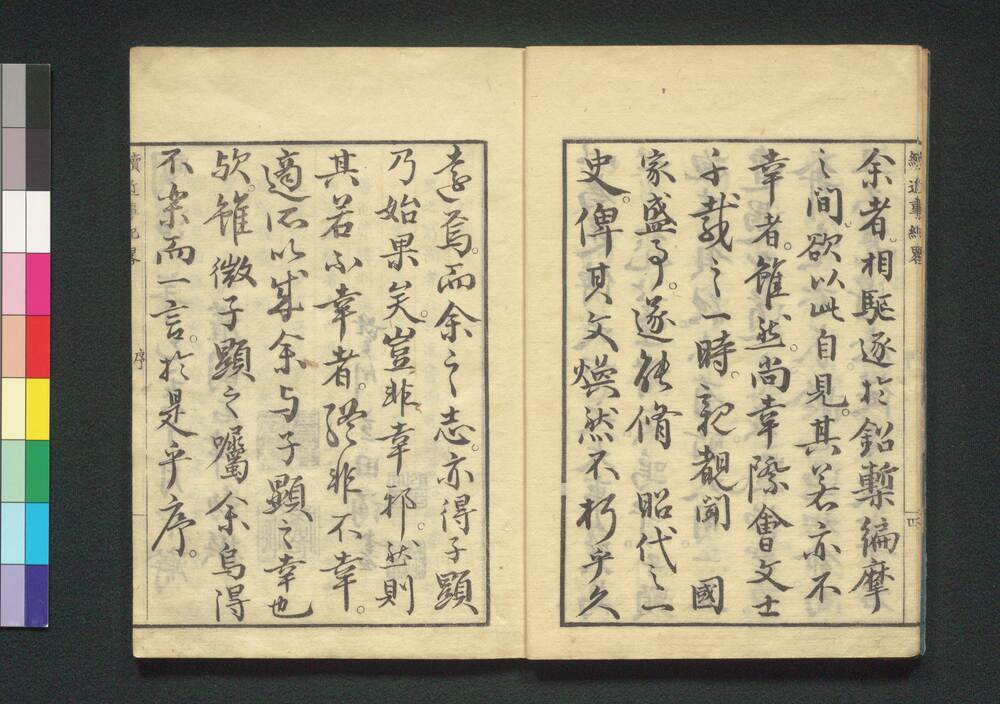 余者。相駈逐於鉛槧編摩
之間。欲以此自見。其若亦不
幸者。雖然。尚幸際會文士
千載之一時。親覩聞　國
家盛事。遂能脩昭代之一
史。俾其文煥然不朽乎久
遠焉。而余之志。亦得子顯
乃始果矣。豈非幸邪。然則
其若不幸者。終非不幸。
適所以成余与子顯之幸也
歟。雖微子顯之囑。余烏得
不楽而一言。於是乎序。
序
四